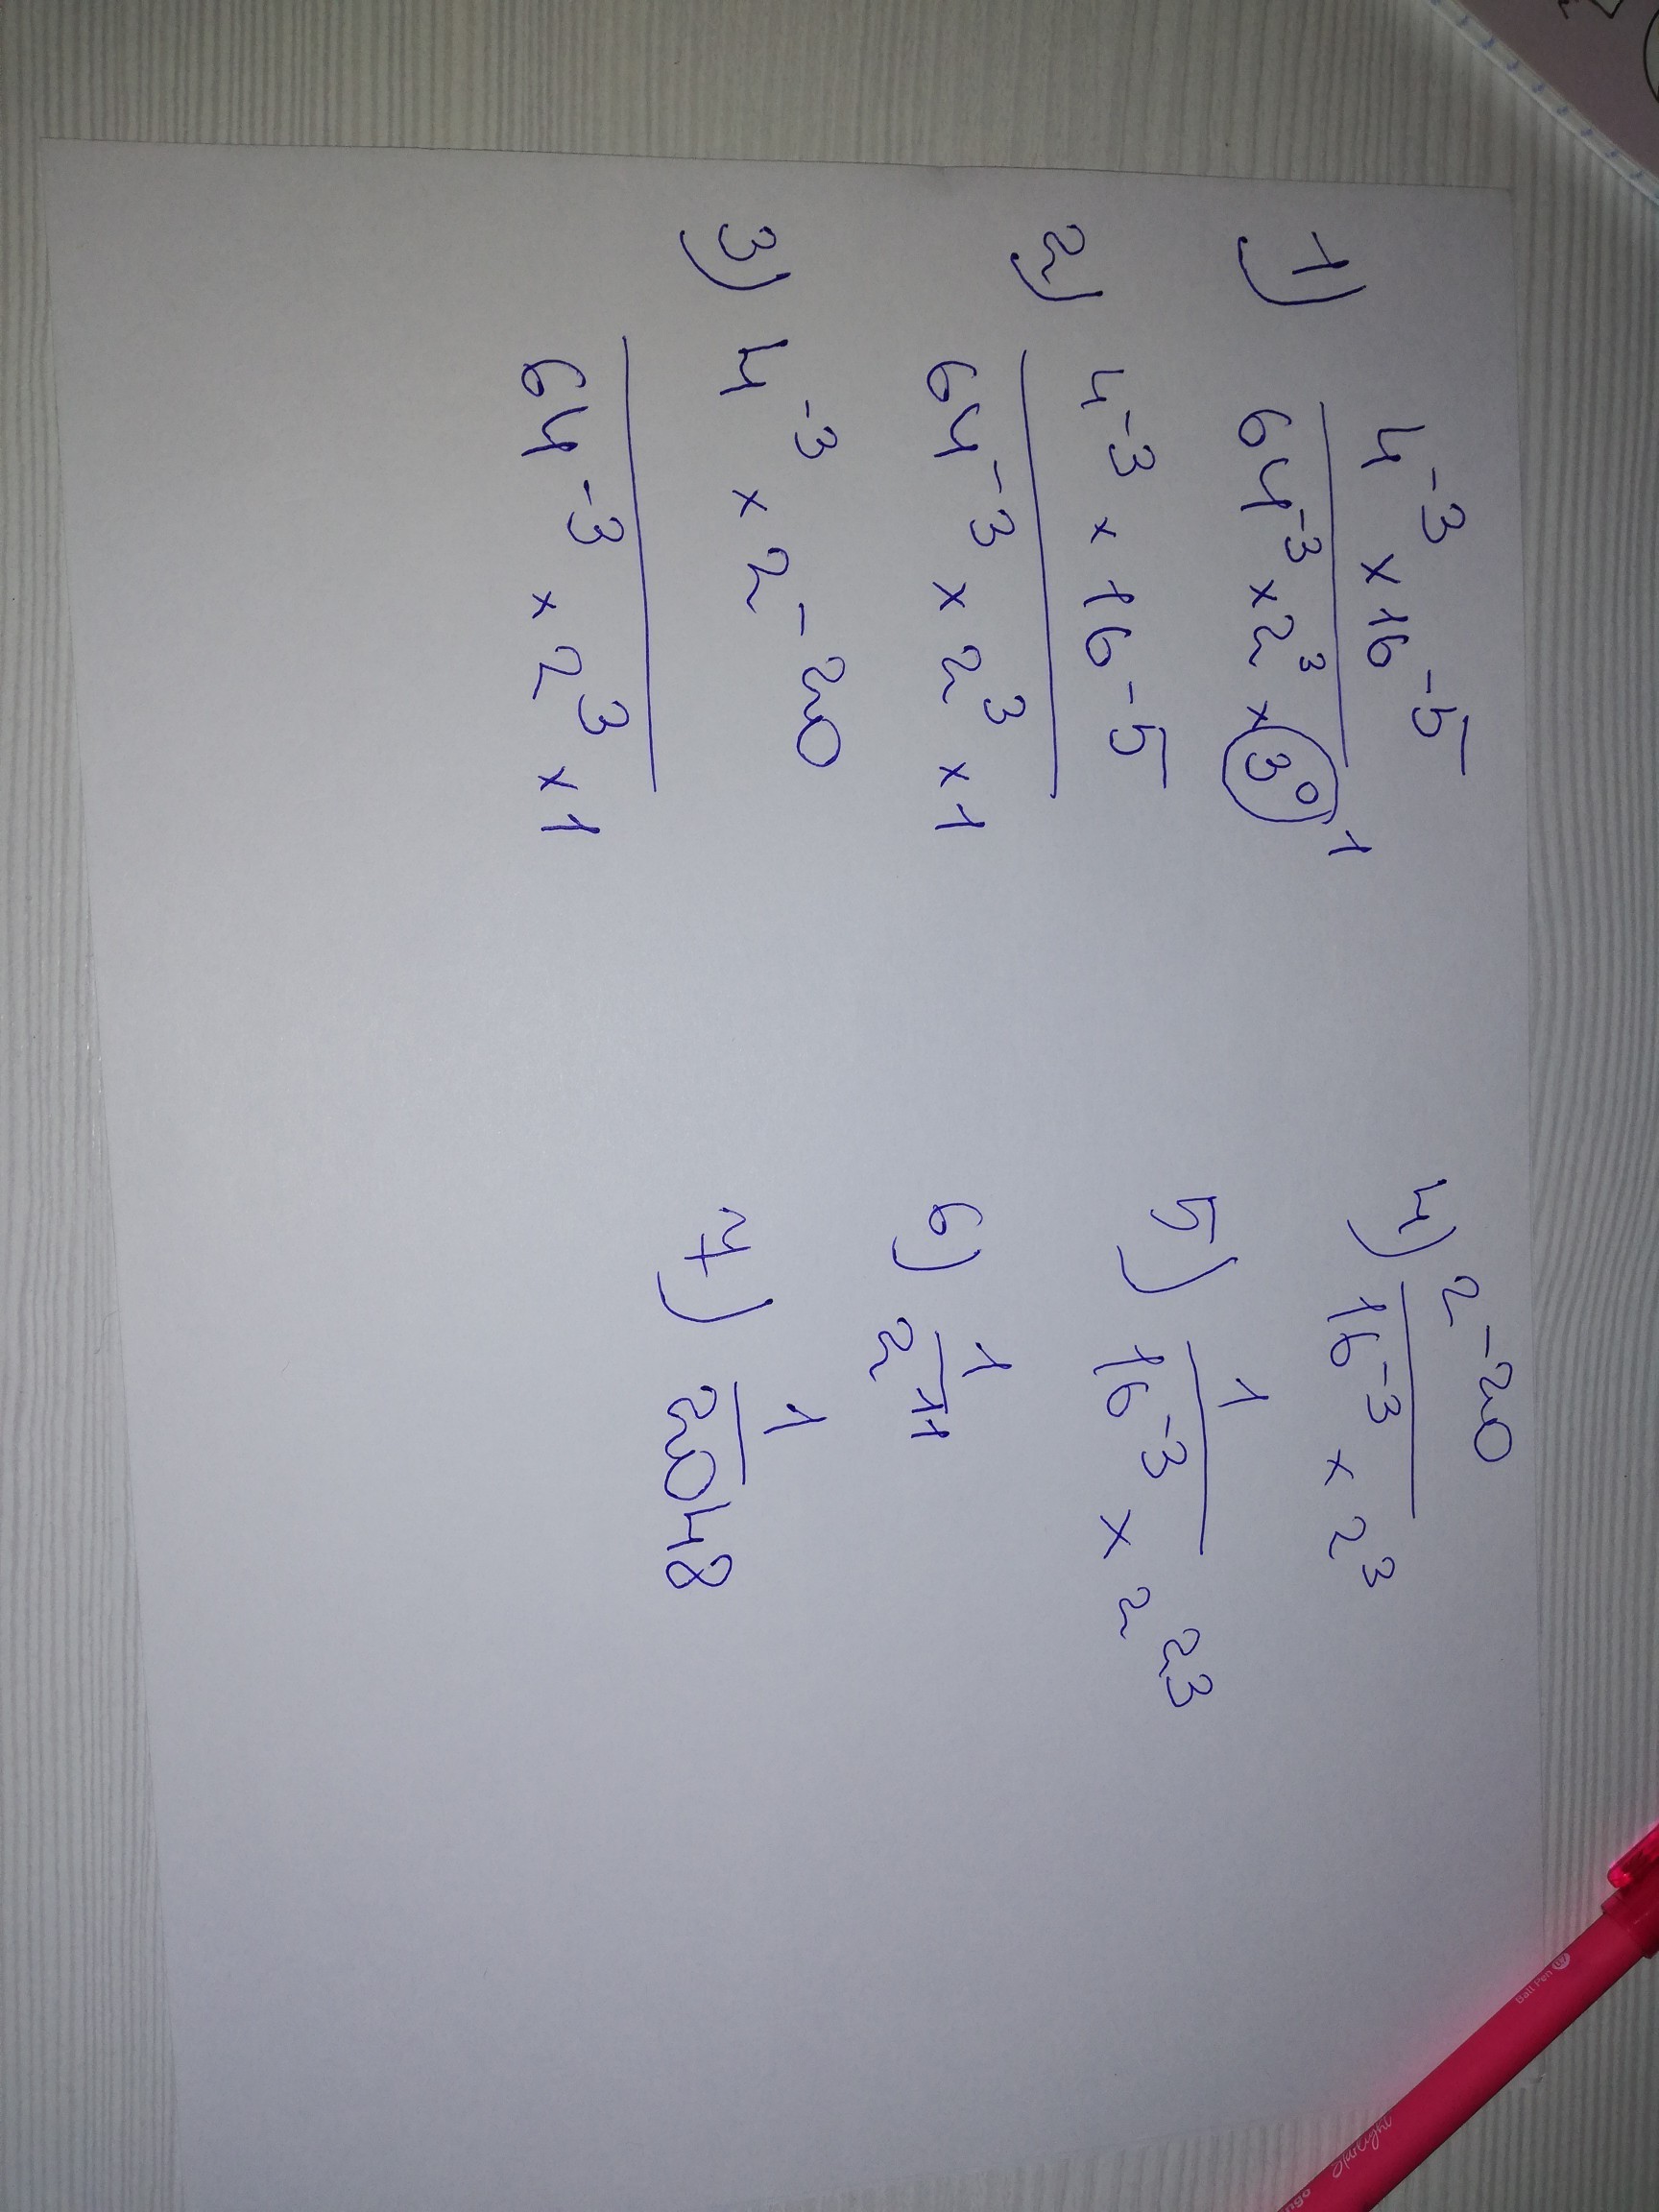 1) 4⁻³ × 16⁻⁵
64⁻³ × 2³ × 3⁰ 1
2) 4⁻³ × 16⁻⁵
64⁻³ × 2³ × 1
3) 4⁻³ × 2⁻²⁰
64⁻³ × 2³ × 1
4) 2⁻²⁰
16⁻³ × 2³
5) 1
16⁻³ × 2²³
6) 1
2¹¹
7) 1
2048
Ball Pen